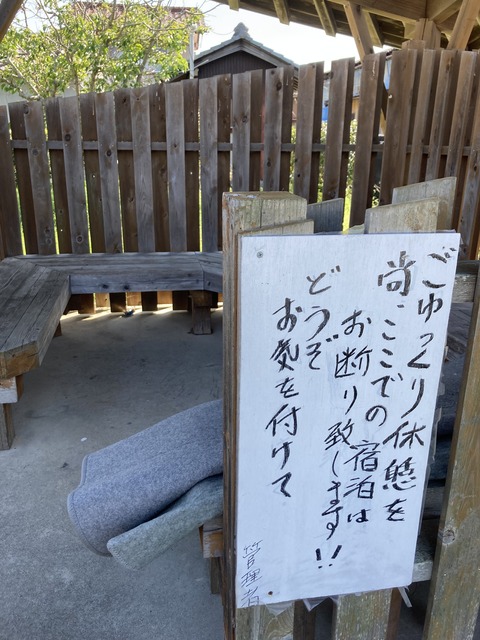 ごゆっくり休憩を
尚、ここでの宿泊は
お断り致します!!
どうぞ
お気を付けて
管理者